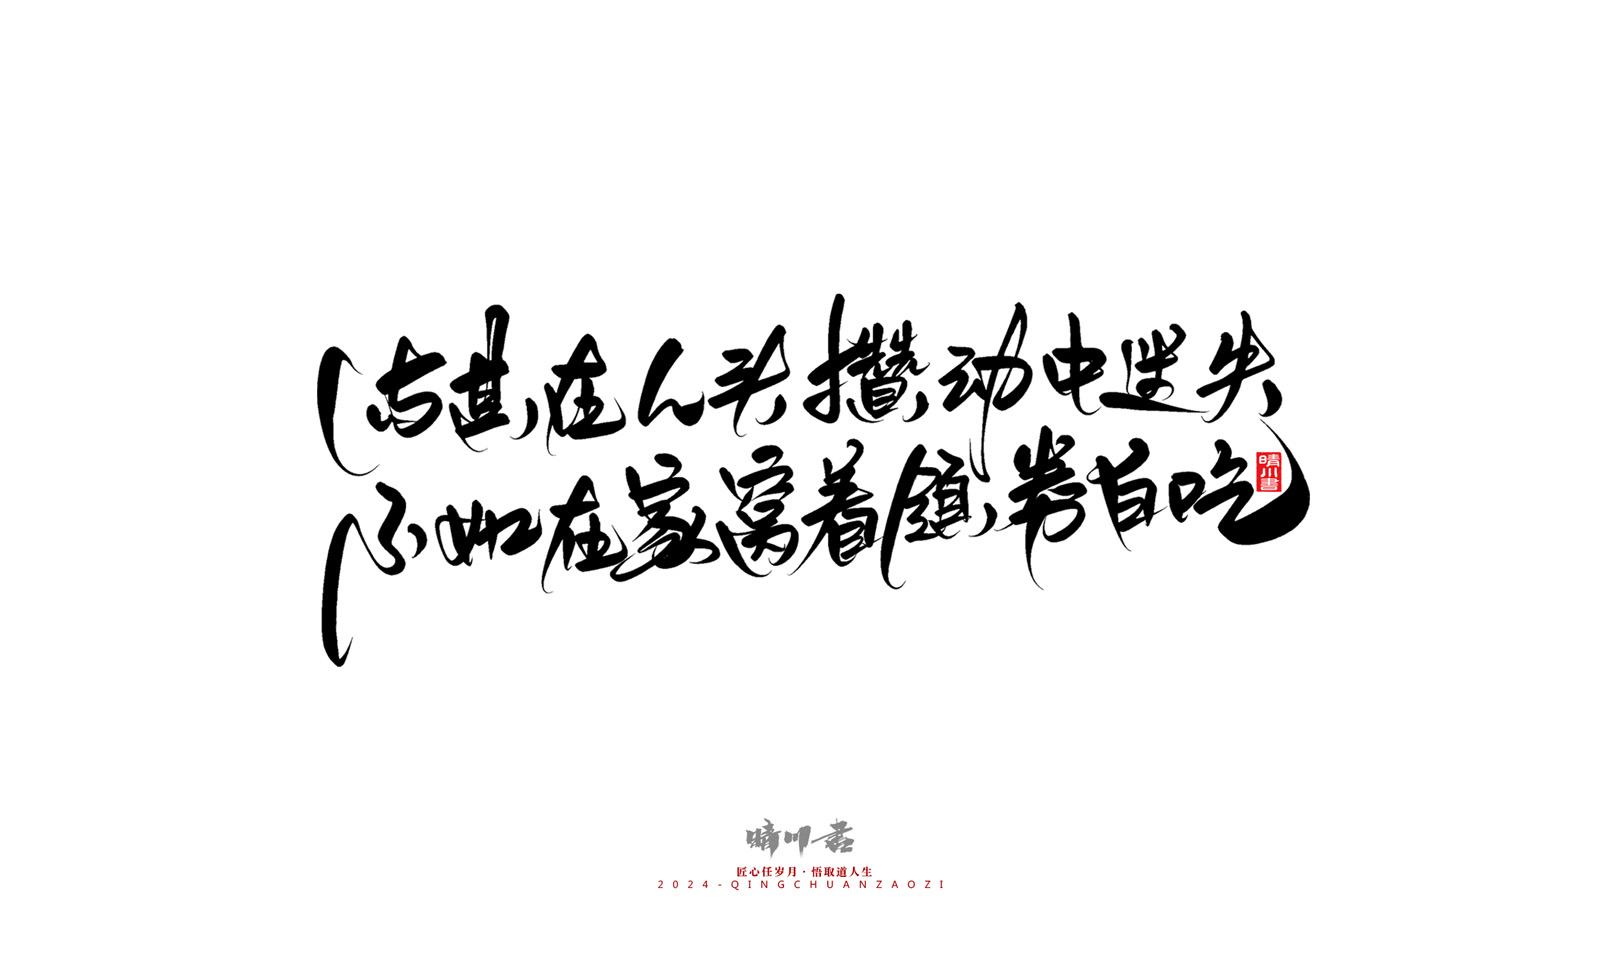 与其在人头攒动中迷失
不如在家窝着领券白吃
晴川書
晴川書
匠心任岁月·悟取道人生
2024-QINGCHUANZAOZI